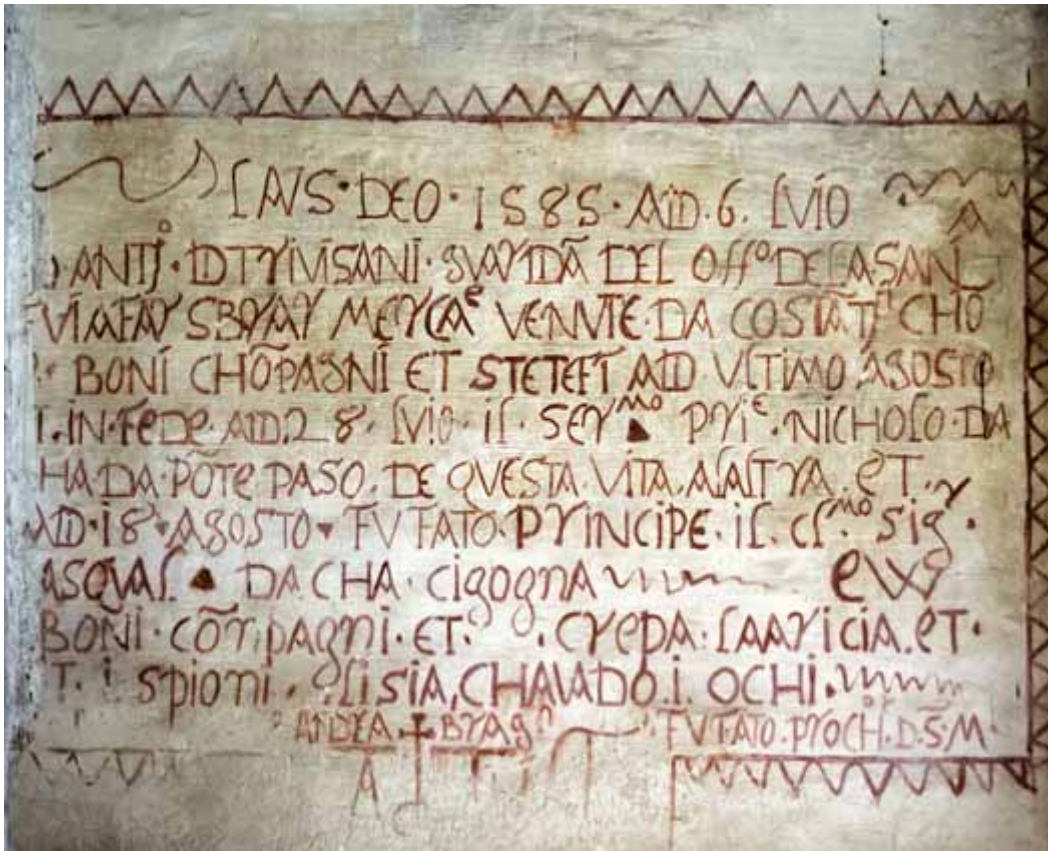 LAVS · DEO · 1585 · ADI . 6 . LVIO
ANTº · D TRIVISANI · GVARDIÃ DEL OFFº DE LA SANI
A FAR SBRAR MERCAᵉ VENVTE · DA CHO
BONI CHÕPAGNI ET STETE FT ADI VLTIMO AGOSTO
IN · FEDE · ADI . 28 · LVIO · IL · SERᴹᴼ PRIᴱ · NICHOLO · DA
HA · DA · PÕTE PASO . DE QVESTA · VITA . ALALTRA . ET .
ADI · 18 · AGOSTO · FV FATO · PRINCIPE · IL · CLᴹᴼ SIGʳ ·
ASQVAL DA CHA · CIGOGNA EVV
BONI · CÕPAGNI · ET · CREPA · LAARICIA . ET ·
SPIONI . LI SIA , CHAVADO . I . OCHI .
ANDREA BRAGº FV FATO . PROCHᴿ . D . S̃ . M .